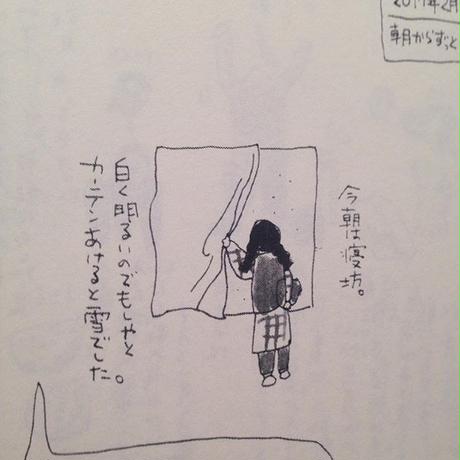 2017年2月
朝からずっと
今朝は寝坊。
白く明るいのでもしやと
カーテンあけると雪でした。